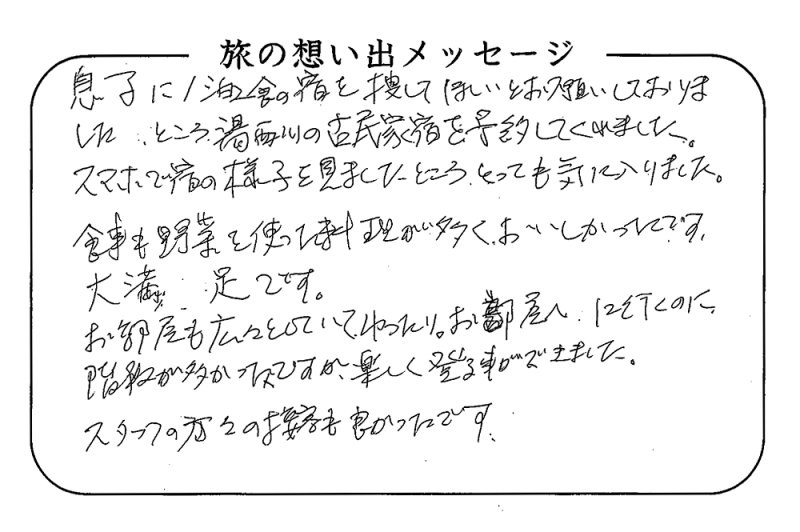 旅の想い出メッセージ
息子に1泊2食の宿を捜してほしいとお願いしておりま
した、ところ、湯西川の古民家宿を予約してくれました。
スマホで宿の様子を見ましたところ、とっても気に入りました。
食事も野菜を使った料理が多く、おいしかったです。
大満足です。
お部屋も広々としていて、ゆったり。お部屋へ、に行くのに、
階段が多かったですが、楽しく登る事ができました。
スタッフの方々の接客も良かったです。